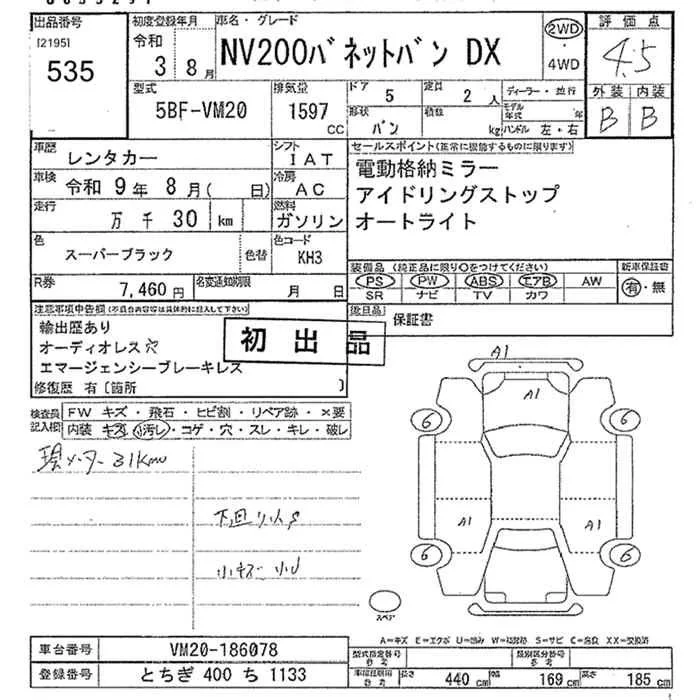 出品番号 初度登録年月 車名・グレード 2WD 評価点
[2195]
535
令和
3 8月
NV200バネットバン DX
4WD
4.5
型式 排気量 ドア 5 定員 2 人 ディーラー・並行 外装 内装
5BF-VM20 1597 CC
形状 バン 積数 kg
モデル年式 年
ハンドル 左・右
B B
車歴 レンタカー
シフト IAT
セールスポイント(正常に機能するものに限ります)
車検 令和 9年 8月( 日)
冷房 AC
電動格納ミラー
走行 万 千 30 km
燃料 ガソリン
アイドリングストップ
オートライト
色 スーパーブラック 色替
色コード KH3
装備品 (純正品に限り○をつけてください) 新車保証書
PS PW ABS エアB AW 有・無
SR ナビ TV カワ
R券 7,460円 名変通知期限 月 日
注意事項申告欄(不具合内容等は具体的に記入して下さい)
後日品 保証書
輸出歴あり
オーディオレス穴
エマージェンシーブレーキレス
修復歴 有〔箇所 〕
初出品
検査員記入欄
FW キズ・飛石・ヒビ割・リペア跡・×要
内装 キズ・汚レ・コゲ・穴・スレ・キレ・破レ
現メーター31km
下回り小サ
小キズ 小U
A1
A1
6 6
A1 A1
6 6
スペア
A=キズ E=エクボ U=凹み W=補修跡 S=サビ C=腐食 XX=交換済
車台番号 VM20-186078
型式指定番号 参考
類別区分番号 参考
登録番号 とちぎ 400 ち 1133
長さ 440 cm 169 cm 高さ 185 cm